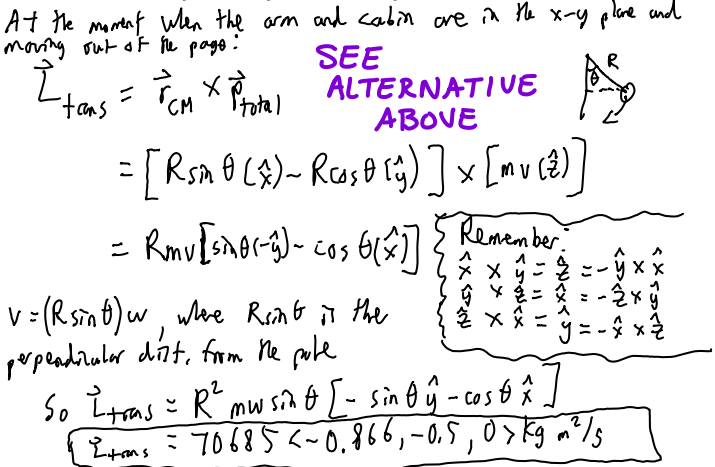 At the moment when the arm and cabin are in the x-y plane and
moving out of the page:
SEE
ALTERNATIVE
ABOVE
R
θ
L⃗trans = r⃗CM × p⃗total
= [R sin θ (x̂) - R cos θ (ŷ)] × [mv (ẑ)]
= Rmv[sin θ(-ŷ) - cos θ(x̂)]
Remember:
x̂ × ŷ = ẑ = -ŷ × x̂
ŷ × ẑ = x̂ = -ẑ × ŷ
ẑ × x̂ = ŷ = -x̂ × ẑ
v = (R sin θ) ω, where R sin θ is the
perpendicular dist. from the pole
So L⃗trans = R² mω sin θ [- sin θ ŷ - cos θ x̂]
L⃗trans = 70685 <-0.866, -0.5, 0> kg m²/s